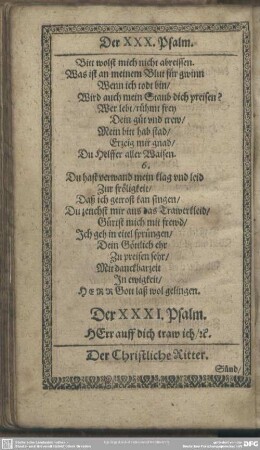 Der XXX. Psalm.
Bin wolst mich nicht abreissen.
Was ist an meinem Blut für gwinn
Wenn ich todt bin/
Wird auch mein Staub dich preisen?
Wer lebt/ rühmt frey
Dein güt vnd trew/
Mein bin hab stad/
Erzeig mir gnad/
Du Helffer aller Waisen.
6.
Du hast verwand mein klag vnd leid
Zur fröligkeit/
Daß ich getrost kan singen/
Du zeuchst mir aus das Trawerkleid/
Gürtst mich mit frewd/
Ich geh in eitel sprüngen/
Dein Göttlich ehr
Zu preisen sehr/
Mit danckbarzeit
In ewigkeit/
HERR Gott laß wol gelingen.
Der XXXI. Psalm.
HErr auff dich traw ich/ ꝛc.
Der Christliche Ritter.
Sünd/
DFG